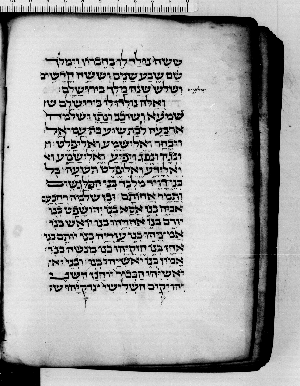 ששה נולד לו בחברון וימלך
שם שבע שנים וששה חדשים
ושלוש שנה מלך בירושלם
ואלה נולדו לו בירושלים ש
שמעא ושובב ונתן ושלמה
ארבעה לבת שוע בת עמיאל
ויבחר ואלישמע ואליפלט ו
ונגה ונפג ויפיע ואלישמע וא
ואלידע ואליפלט תשעה כל
בני דויד מלבד בני פלגשים
ותמר אחותם ובן שלמה רחבעם
אביה בנו אסא בנו יהושפט בנו
יורם בנו אחזיהו בנו יואש בנו
אמציהו בנו עזריה בנו יותם בנו
אחז בנו חזקיהו בנו מנשה בנו
אמון בנו יאשיהו בנו ובני יא
יאשיהו הבכור יוחנן השני
יהויקים השלישי צדקיהו